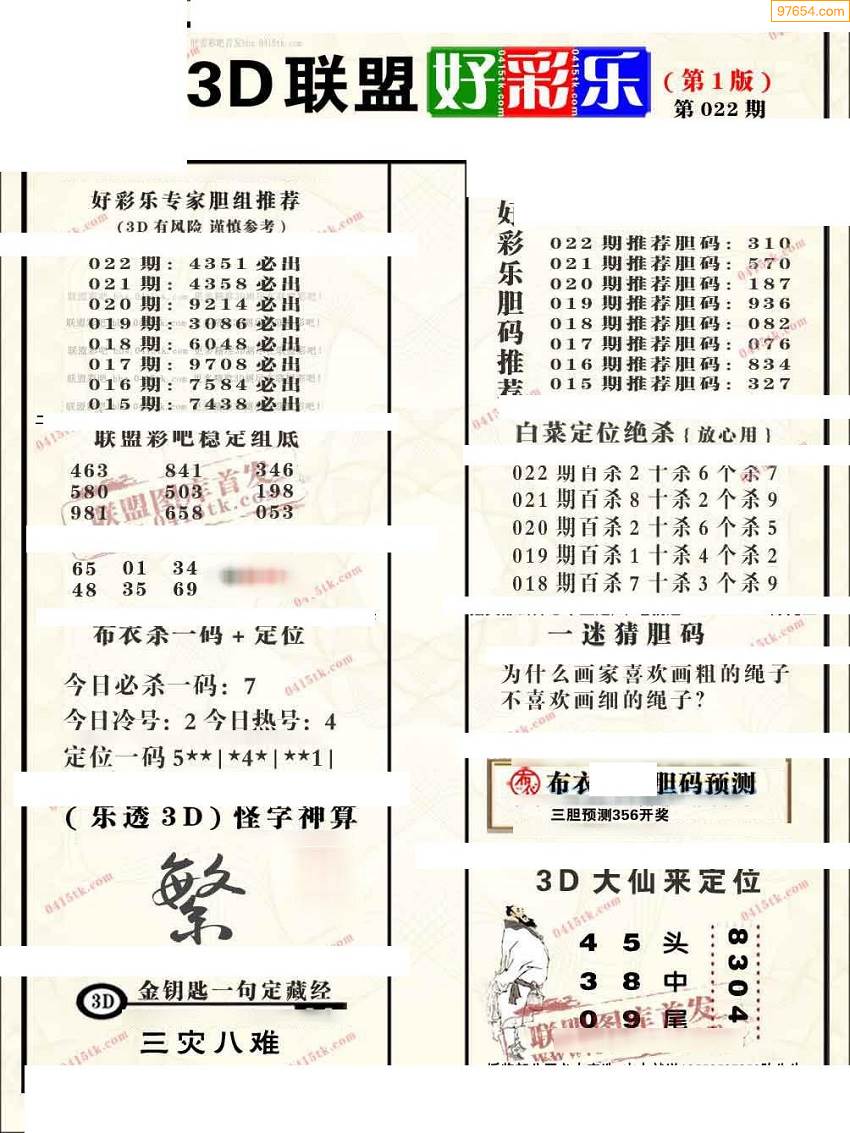 97654.com
3D联盟好彩乐
(第1版)
第022期
好彩乐专家胆组推荐
(3D有风险 谨慎参考)
022期：4351必出
021期：4358必出
020期：9214必出
019期：3086必出
018期：6048必出
017期：9708必出
016期：7584必出
015期：7438必出
联盟彩吧稳定组底
463 841 346
580 503 198
981 658 053
65 01 34
48 35 69
布衣杀一码+定位
今日必杀一码：7
今日冷号：2 今日热号：4
定位一码5**|*4*|**1|
(乐透3D)怪字神算
繁
3D 金钥匙一句定藏经
三灾八难
好彩乐胆码推荐
022期推荐胆码：310
021期推荐胆码：570
020期推荐胆码：187
019期推荐胆码：936
018期推荐胆码：082
017期推荐胆码：076
016期推荐胆码：834
015期推荐胆码：327
白菜定位绝杀{放心用}
022期百杀2十杀6个杀7
021期百杀8十杀2个杀9
020期百杀2十杀6个杀5
019期百杀1十杀4个杀2
018期百杀7十杀3个杀9
一迷猜胆码
为什么画家喜欢画粗的绳子
不喜欢画细的绳子?
布衣 胆码预测
三胆预测356开奖
3D大仙来定位
4 5 头
3 8 中
0 9 尾
8304
联盟图库首发
0415tk.com